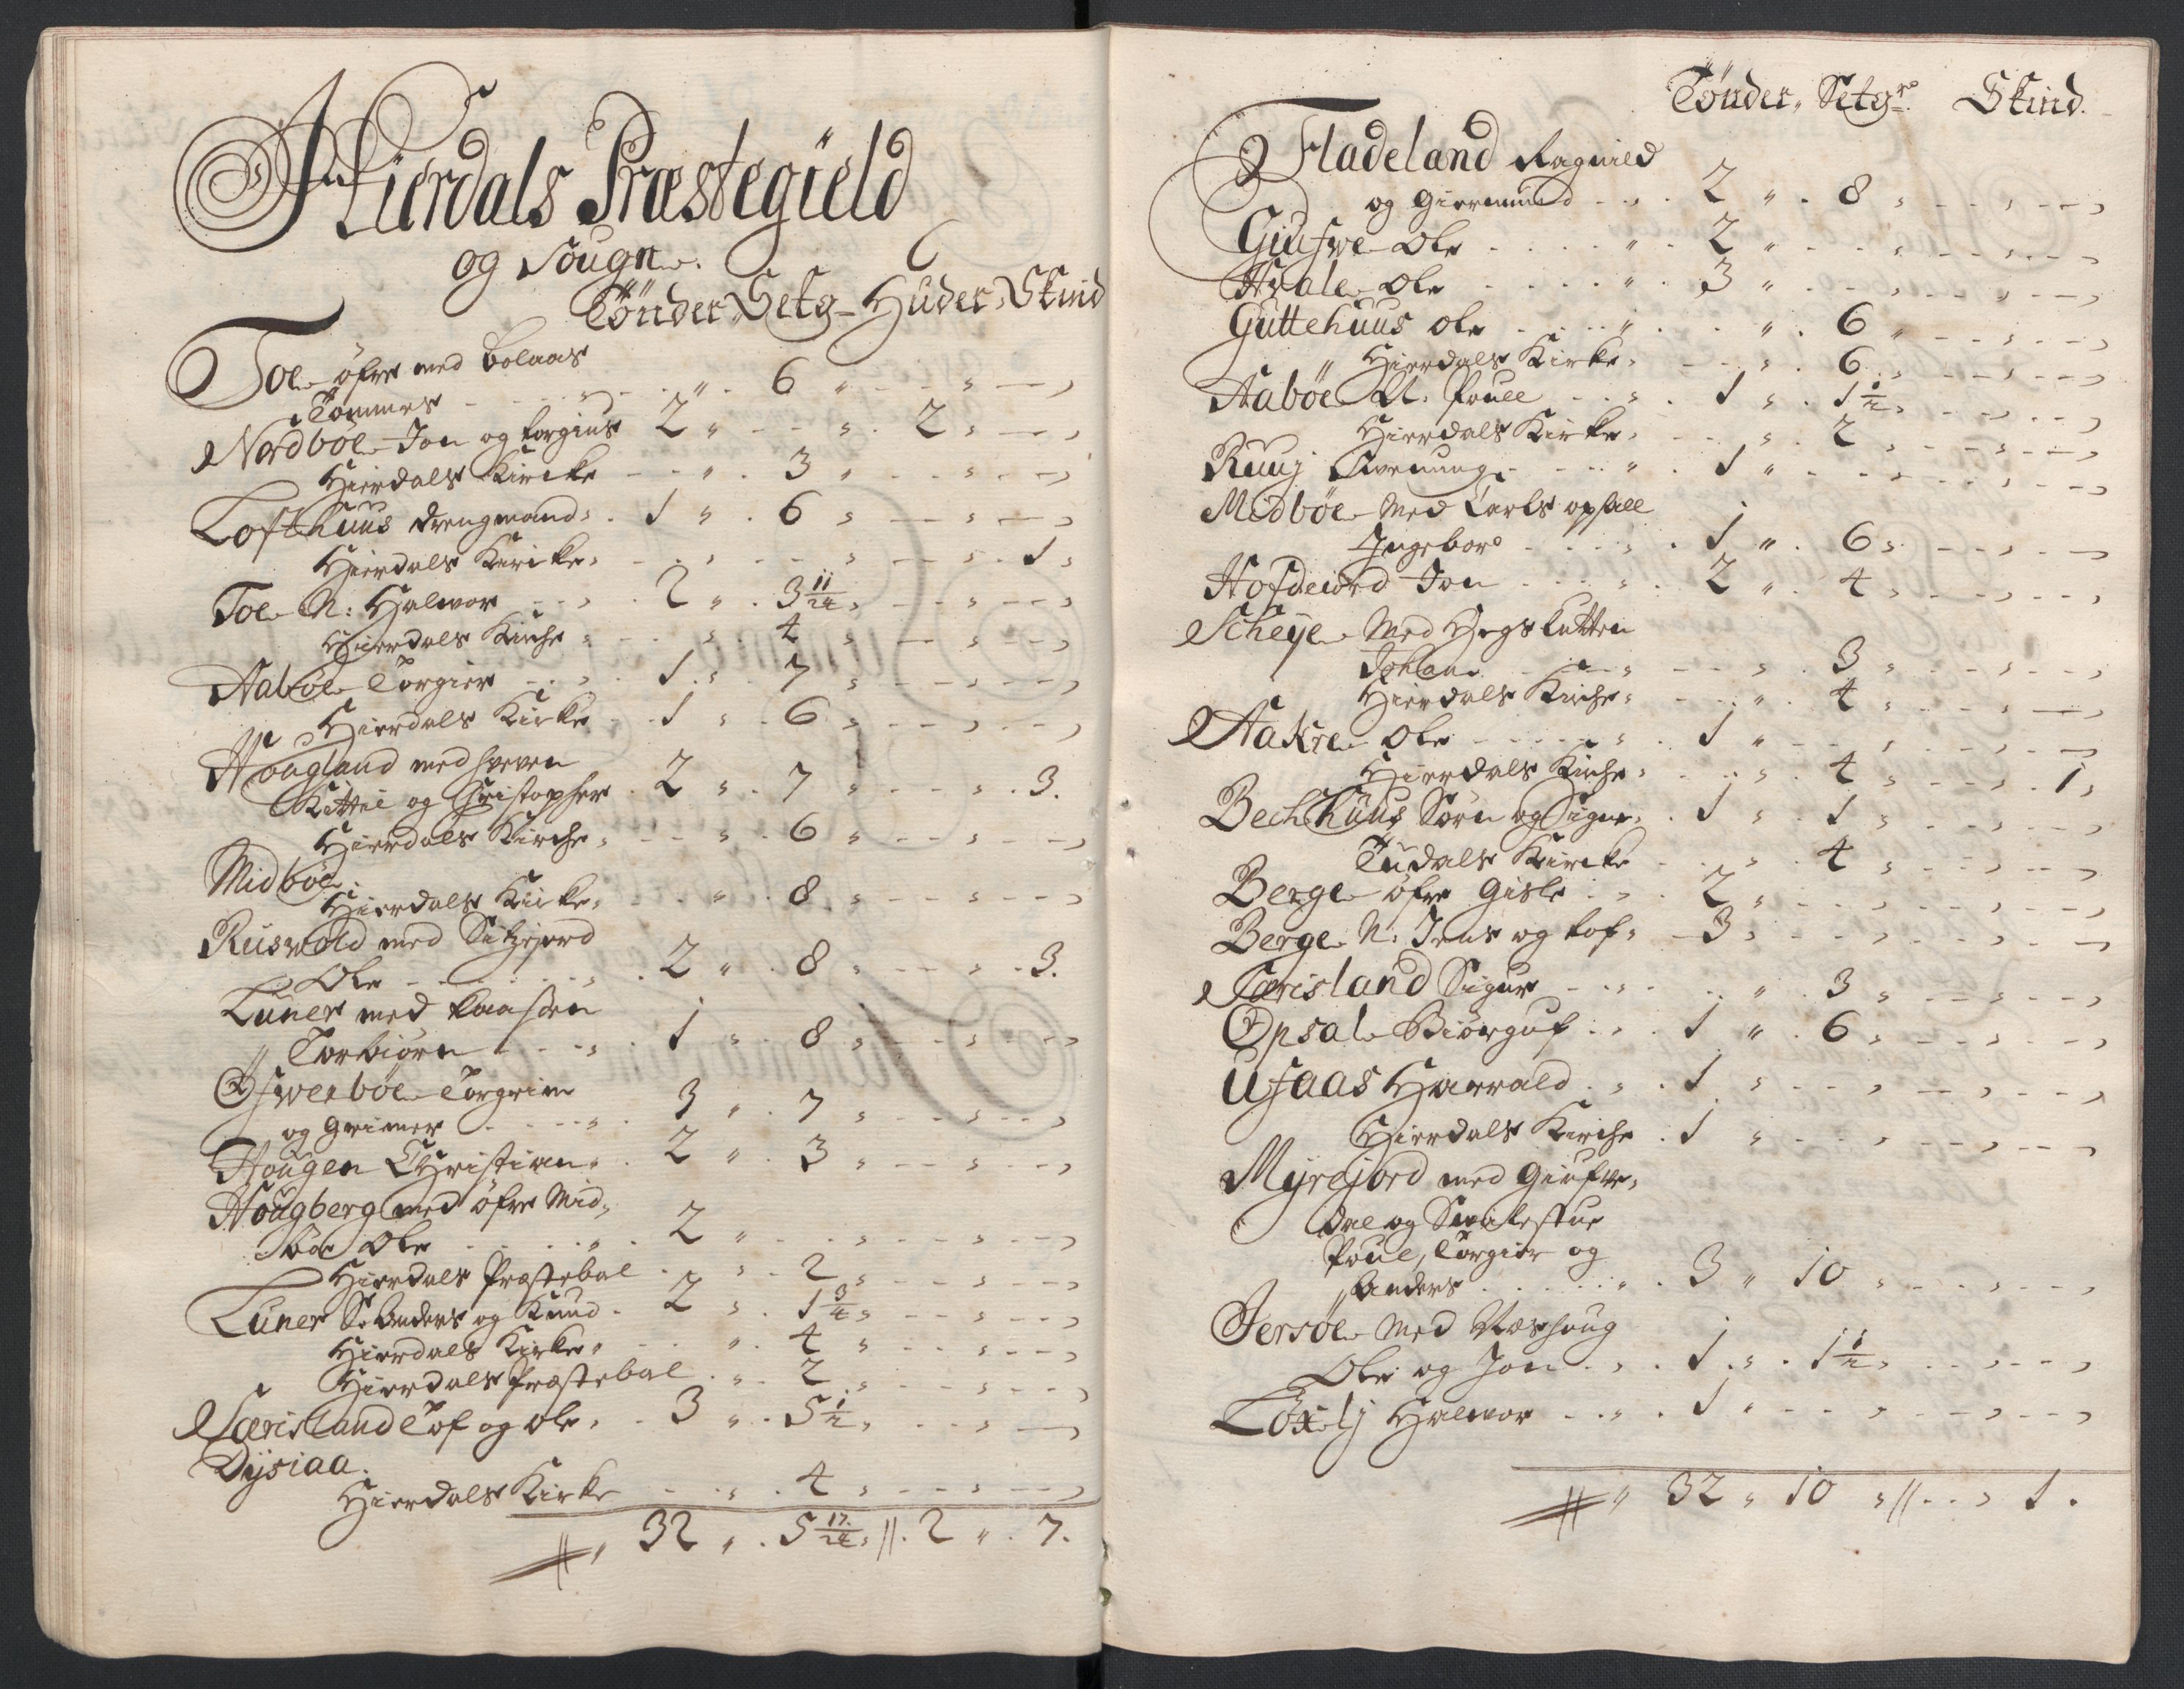 Hierdals Præstegield
og Sougn
Tönder Setg Huder Skind
Toe öfre med Bolaas
Tommes - - - " 6 " - - -
Nordböe Jon og Torgius 2 " - - - 2 - -
Hierdals Kircke - - " 3 " - - -
Lofthuus Drengmand 1 " 6 - - -
Hierdals Kircke - - - - 1
Toe N: Halvor - - 2 " 3 11/24 - - -
Hierdals Kirche - - 4 - - -
Aaböe Torgier - - 1 " 7 - - -
Hierdals Kircke - 1 " 6 - - -
Hougland med
Kittel og Christopher 2 " 7 - - 3.
Hierdals Kirche - - 6 - - -
Midböe
Hierdals Kircke - - " 8 - - -
Ruswold med
Ole - - - 2 " 8 - - 3.
Luner med Kaasen
Torbiörn - - - 1 " 8 - - -
Ofwerböe Torgrim
og Grimer - - - 3 " 7 - - -
Hougen Christian 2 " 3 - - -
Hougberg med öfre Mid-
böe Ole - - - 2 " - - -
Hierdals Præstebol - - 2 - - -
Luner S. Anders og Knud 2 " 1 3/4 - - -
Hierdals Kirke - - " 4 - - -
Hierdals Præstebol - - 2 - - -
Særisland Tof og Ole 3 " 5 1/2 - - -
Dysiaa.
Hierdals Kirke - - - 4 - - -
32 " 5 17/24 // 2 " 7.
Tönder Setgr Skind.
Fladeland Ragnild
og Giermund - - 2 " 8 - - -
Giufwe Ole - - - 2 " - - -
Hvale Ole - - - 3 " - - -
Guttehuus Ole - - - " 6 " - -
" Hierdals Kirke - - 6 - - -
Aaböe N. Poull - - 1 " 1 1/2 - - -
Hierdals Kirke - - 2 - - -
Ruuj - - 1 " - - -
Midböe Med opsall
Ingebor - - - 1 " 6 - - -
Hofdeiord Jon - - - 2 " 4 - - -
Scheye Med
- - - 3 - - -
Hierdals Kirche - - " 4 - - -
Aakre Ole - - - 1 " - - -
Hierdals Kirche - - 4 - - 1
Bechhuus Sörn og Signe 1 " 1 - - -
Tudals Kircke - - 4 - - -
Berge öfre Gisle - - 2 " - - -
Berge N: Jens og Tof - 3 - - -
Særisland Sigur - - - " 3 - - -
Opsal Biörguf - - 1 " 6 - - -
Ufaas Harrald - - 1 - - -
Hierdals Kirche - 1 - - -
Myrejord med Giufve-
dal og
Poul, Torgier og
Anders - - - 3 " 10 - - -
Jersöe Med
Ole og Jon - - 1 " 1 1/2 - - -
Loxely Halvor - - 1 - - -
" 32 " 10 // - - 1.